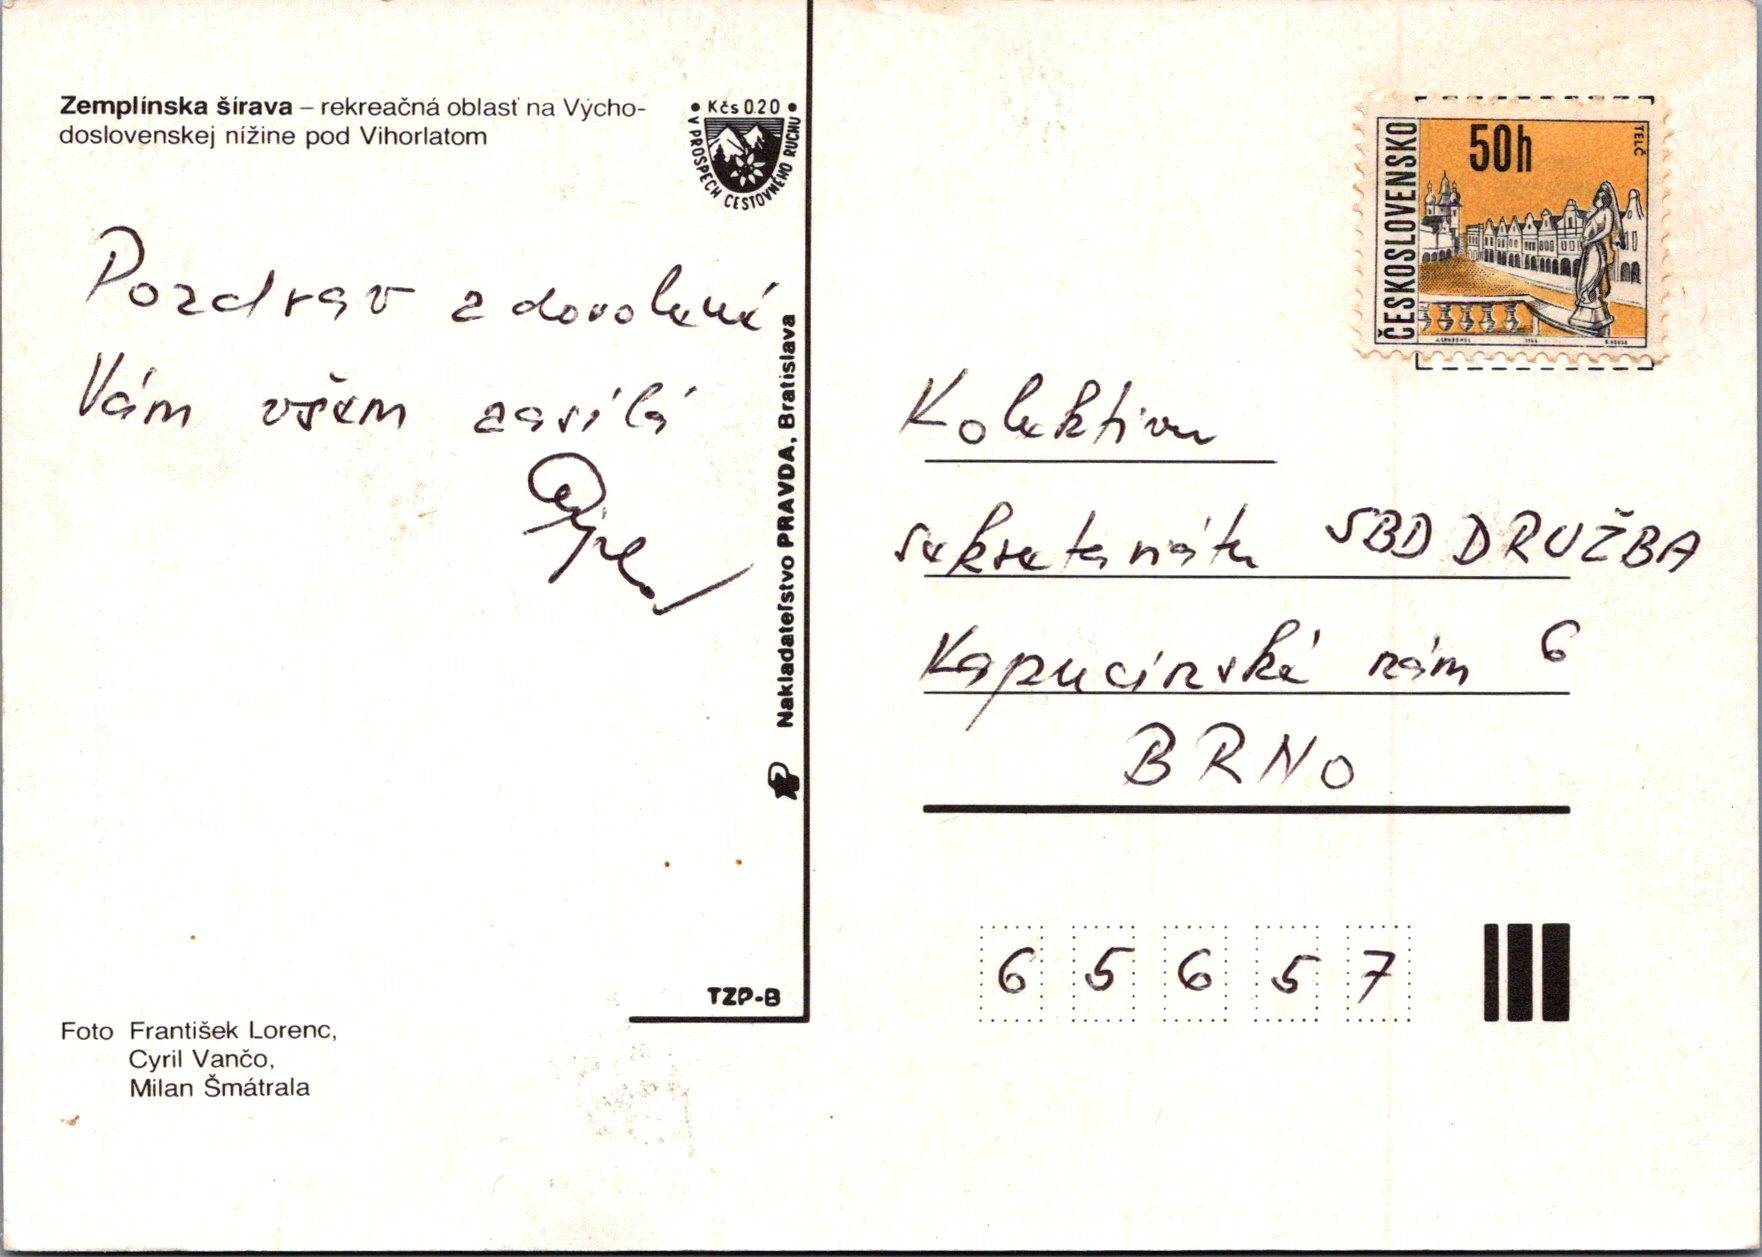 Zemplínska šírava – rekreačná oblasť na Výcho-
doslovenskej nížine pod Vihorlatom
• Kčs 0.20 •
V PROSPECH CESTOVNÉHO RUCHU
Pozdrav z dovolené
Vám všem zasílá
Nakladateľstvo PRAVDA, Bratislava
TZP-B
Foto František Lorenc,
Cyril Vančo,
Milan Šmátrala
ČESKOSLOVENSKO
50h
TELČ
Kolektivu
sekretariátu SBD DRUŽBA
Kapucínské nám 6
BRNO
6 5 6 5 7